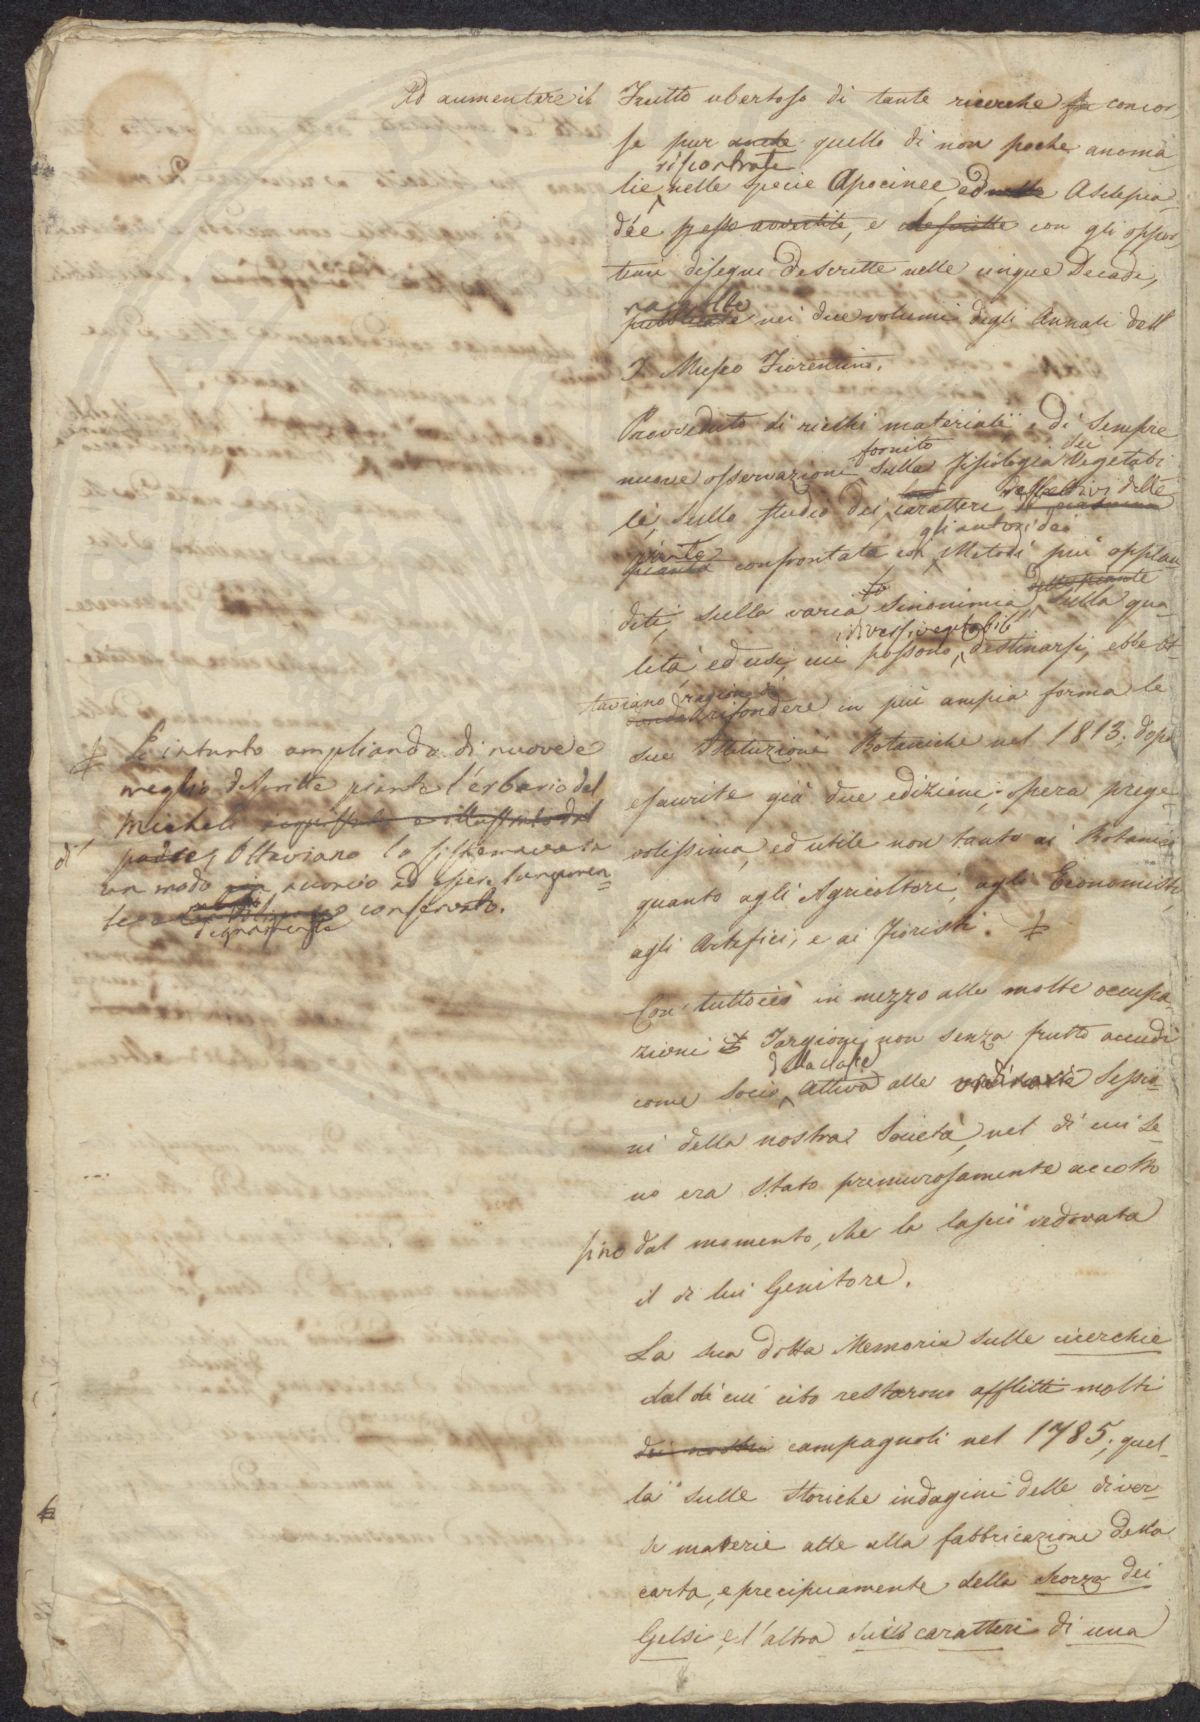 Ad aumentare il Frutto ubertoso di tante ricerche fu concor,
se pur anche quello di non poche anoma
riscontrate
lie, nelle specie Apocinee, ed nelle Asclepia-
dée spesso avvertite, e descritte con gli oppor,
tuni disegni descritte nelle cinque Decadi,
raccolte
pubblicate nei due volumi degli Annali dell'
I. Museo Fiorentino.
Provveduto di ricchi materiali, e di sempre
fornito dei
nuove osservazioni sulla Fisiologia Vegetabi
loro respettivi delle
le, sullo studio dei caratteri di ciascuna
piante gli autori dei
pianta confrontata coi Metodi più applau
delle piante
diti, sulla varia sinonimia, sulla qua-
i diversi vegetabili
lità ed usi, cui possono destinarsi, ebbe Ot-
taviano ragione di
onde rifondere in più ampia forma le
sue Istituzioni Botaniche nel 1813, dopo
esaurite già due edizioni; opera prege-
volissima, ed utile non tanto ai Botanici
quanto agli Agricoltori, agli Economisti,
agli Artefici, e ai Fioristi. ‡
‡ E intanto ampliando di nuove e
meglio descritte piante l'erbario del
Micheli acquistato e illustrato dal
di
padre, Ottaviano lo sistemava in
un modo più acconcio ad esser lungamen-
te e conservato.
degnamente
Con tuttociò in mezzo alle molte occupa-
zioni il Targioni non senza frutto accudì
della classe
come Socio, attiva alle ordinarie Sessio-
ni della nostra Società, nel di cui Se-
no era stato premurosamente accolto
sino dal momento, che la lasciò vedovata
il di lui Genitore.
La sua dotta Memoria sulle cicerchie
dal di cui cibo restarono afflitti molti
dei nostri campagnoli nel 1785; quel-
la sulle storiche indagini delle diver-
se materie atte alla fabbricazione della
carta, e precipuamente della scorza dei
Gelsi, e l'altra sui caratteri di una